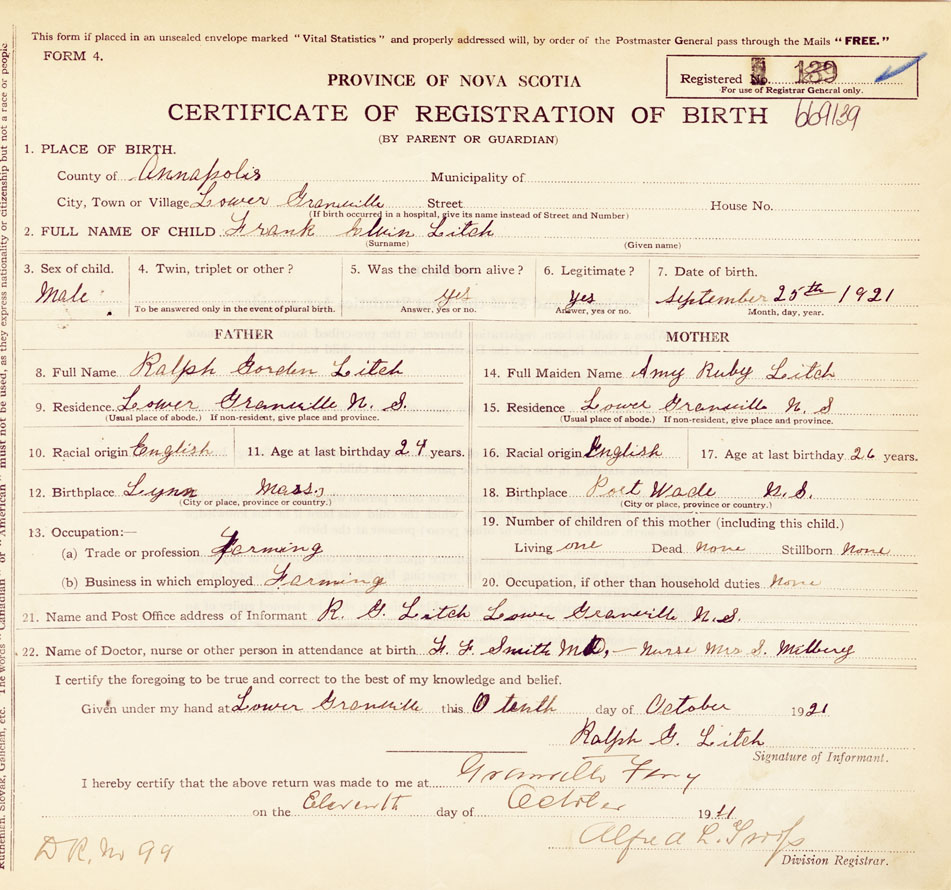 This form if placed in an unsealed envelope marked "Vital Statistics" and properly addressed will, by order of the Postmaster General pass through the Mails "FREE."
FORM 4.
PROVINCE OF NOVA SCOTIA
Registered No. 139
For use of Registrar General only.
CERTIFICATE OF REGISTRATION OF BIRTH 669139
(BY PARENT OR GUARDIAN)
1. PLACE OF BIRTH.
County of Annapolis Municipality of
City, Town or Village Lower Granville Street House No.
(If birth occurred in a hospital, give its name instead of Street and Number)
2. FULL NAME OF CHILD Frank Elvin Litch
(Surname) (Given name)
3. Sex of child. 4. Twin, triplet or other? 5. Was the child born alive? 6. Legitimate? 7. Date of birth.
Male yes Yes September 25th 1921
To be answered only in the event of plural birth. Answer, yes or no. Answer, yes or no. Month, day, year.
FATHER MOTHER
8. Full Name Ralph Gorden Litch 14. Full Maiden Name Amy Ruby Litch
9. Residence. Lower Granville N. S. 15. Residence Lower Granville N. S
(Usual place of abode.) If non-resident, give place and province. (Usual place of abode.) If non-resident, give place and province.
10. Racial origin English 11. Age at last birthday 24 years. 16. Racial origin English 17. Age at last birthday 26 years.
12. Birthplace Lynn Mass. 18. Birthplace Port Wade N.S.
(City or place, province or country.) (City or place, province or country.)
13. Occupation:— 19. Number of children of this mother (including this child.)
(a) Trade or profession Farming Living one Dead None Stillborn None
(b) Business in which employed Farming 20. Occupation, if other than household duties None
21. Name and Post Office address of Informant R. G. Litch Lower Granville N.S.
22. Name of Doctor, nurse or other person in attendance at birth F. F. Smith M.D, — Nurse Mrs S. Milbery
I certify the foregoing to be true and correct to the best of my knowledge and belief.
Given under my hand at Lower Granville this tenth day of October 1921
Ralph G. Litch
Signature of Informant.
I hereby certify that the above return was made to me at Granville Ferry
on the Eleventh day of October 19
Alfred L.
Division Registrar.
D R. No 99
Ruthenian, Slovak, Galician, etc. The words "Canadian" or "American" must not be used, as they express nationality or citizenship but not a race or people